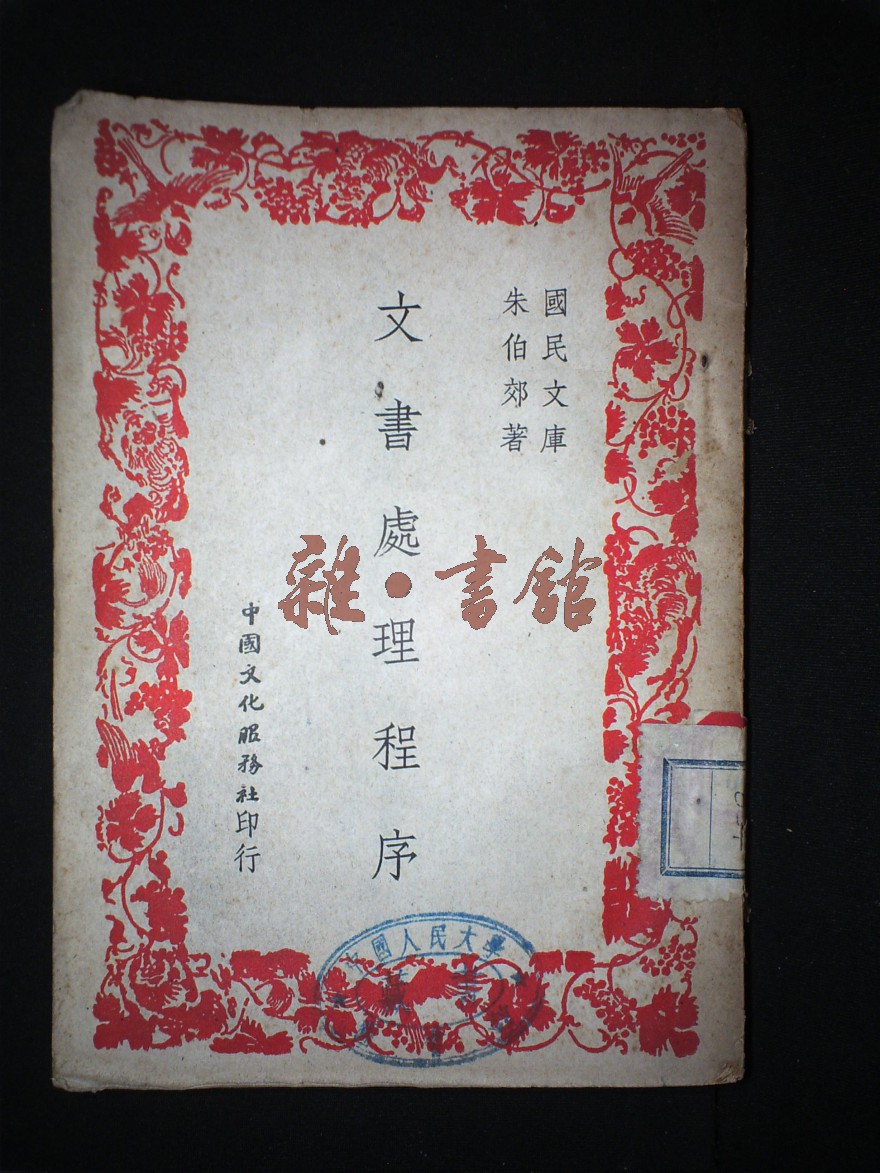 國民文庫
朱伯郊著
文書處理程序
中國文化服務社印行
雜·書館
中國人民大學
藏書